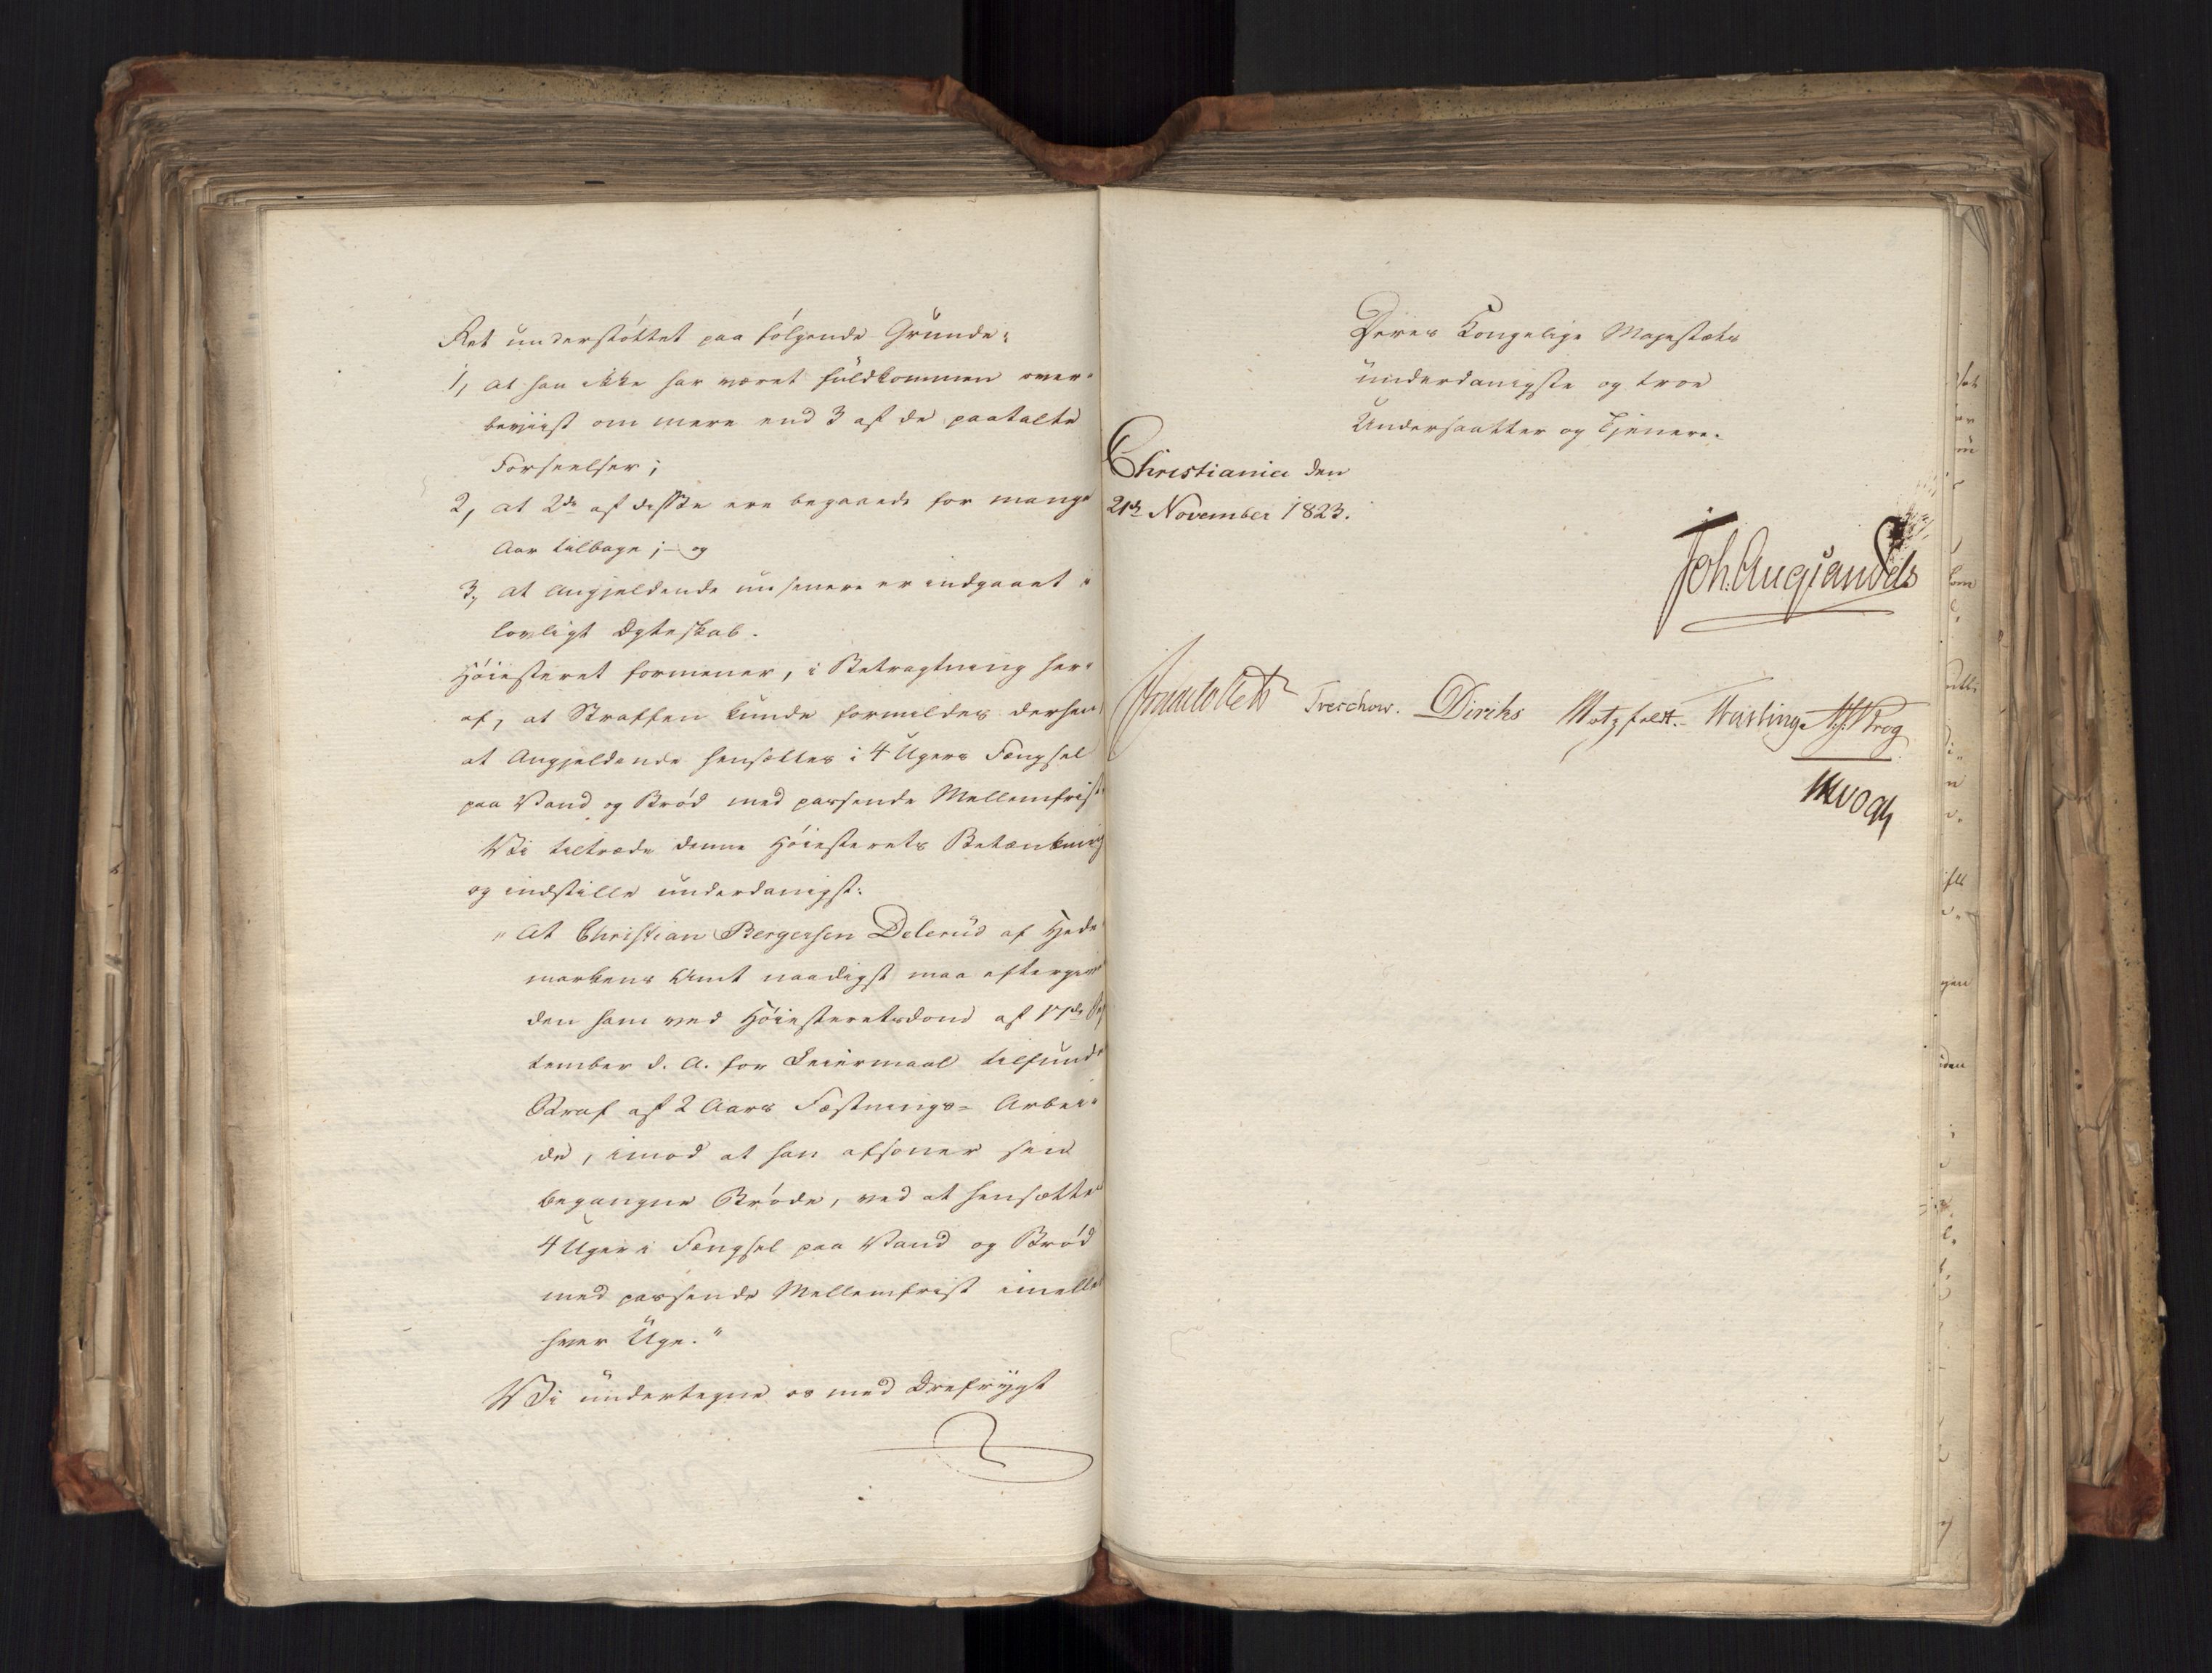 Ret understøttet paa følgende Grunde:
1, at han ikke har været fuldkommen over-
beviist om mere end 3 af de paatalte
Forseelser;
2, at 2de af disse ere begaaede for mange
Aar tilbage; - og
3, at Angjeldende nu senere er indgaaet i
lovligt Egteskab.
Høiesteret formener, i Betragtning her-
af, at Straffen kunde formildes derhen
at Angjeldende hensættes i 4 Ugers Fængsel
paa Vand og Brød med passende Mellemfrist.
Vi tiltræde denne Høiesterets Betænkning
og indstille underdanigst:
"At Christian Bergersen Delerud af Hede-
markens Amt naadigst maa eftergives
den ham ved Høiesteretsdom af 17de Sep-
tember d. A. for Leiermaal tilfundne
Straf af 2 Aars Fæstnings-Arbei-
de, imod at han afsoner sin
begangne Brøde, ved at hensættes
4 Uger i Fængsel paa Vand og Brød
med passende Mellemfrist imellem
hver Uge."
Vi undertegne os med Ærefrygt
Deres Kongelige Majestæts
underdanigste og troe
Undersaatter og Tjenere.
Christiania den
21de November 1823.
Joh. Aug. Sandels
Treschow. Diriks Motzfeldt. Krog